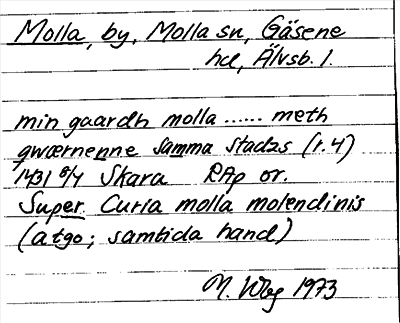 Molla, by, Molla sn, Gäsene
hd, Älvsb. l.
min gaardh molla ...... meth
gwærnenne samma stadzs (r. 4)
1431 8/4 Skara RAp or.
Super Curia molla molendinis
(atgo; samtida hand)
1973